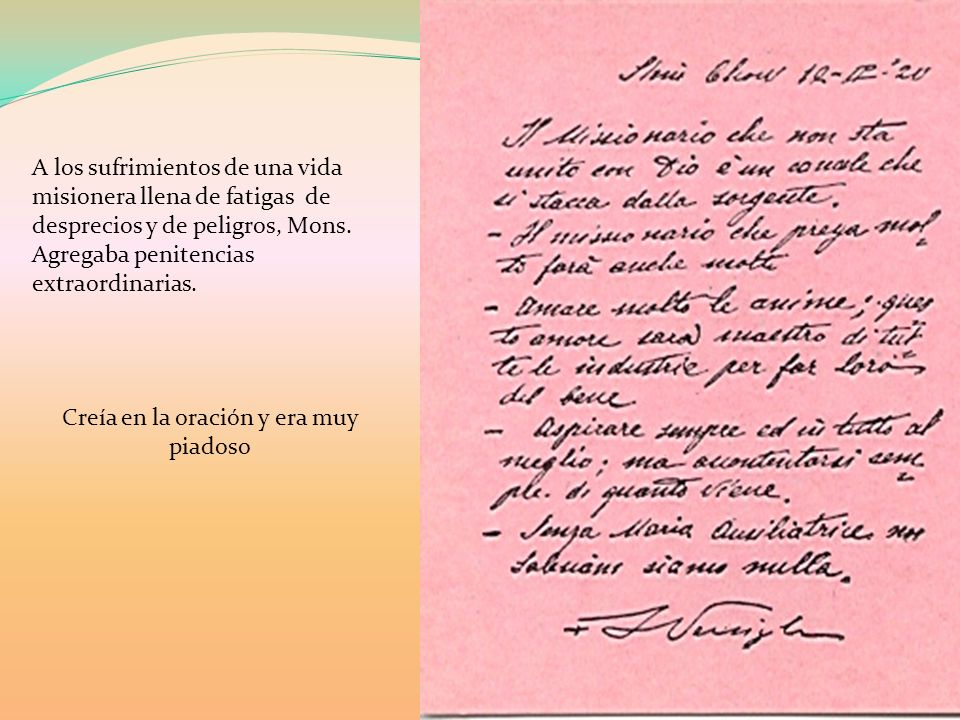 A los sufrimientos de una vida
misionera llena de fatigas de
desprecios y de peligros, Mons.
Agregaba penitencias
extraordinarias.
Creía en la oración y era muy
piadoso
Chow 12-IX-'20
Il Missionario che non sta
unito con Dio è un canale che
si stacca dalla sorgente.
- Il missionario che prega mol-
to farà anche molto
- Amare molto le anime; ques-
to amore sarà maestro di tut-
te le industrie per far loro
del bene
- Aspirare sempre ed in tutto al
meglio; ma accontentarsi sem-
pre di quanto viene.
- Senza Maria Ausiliatrice noi
Salesiani siamo nulla.